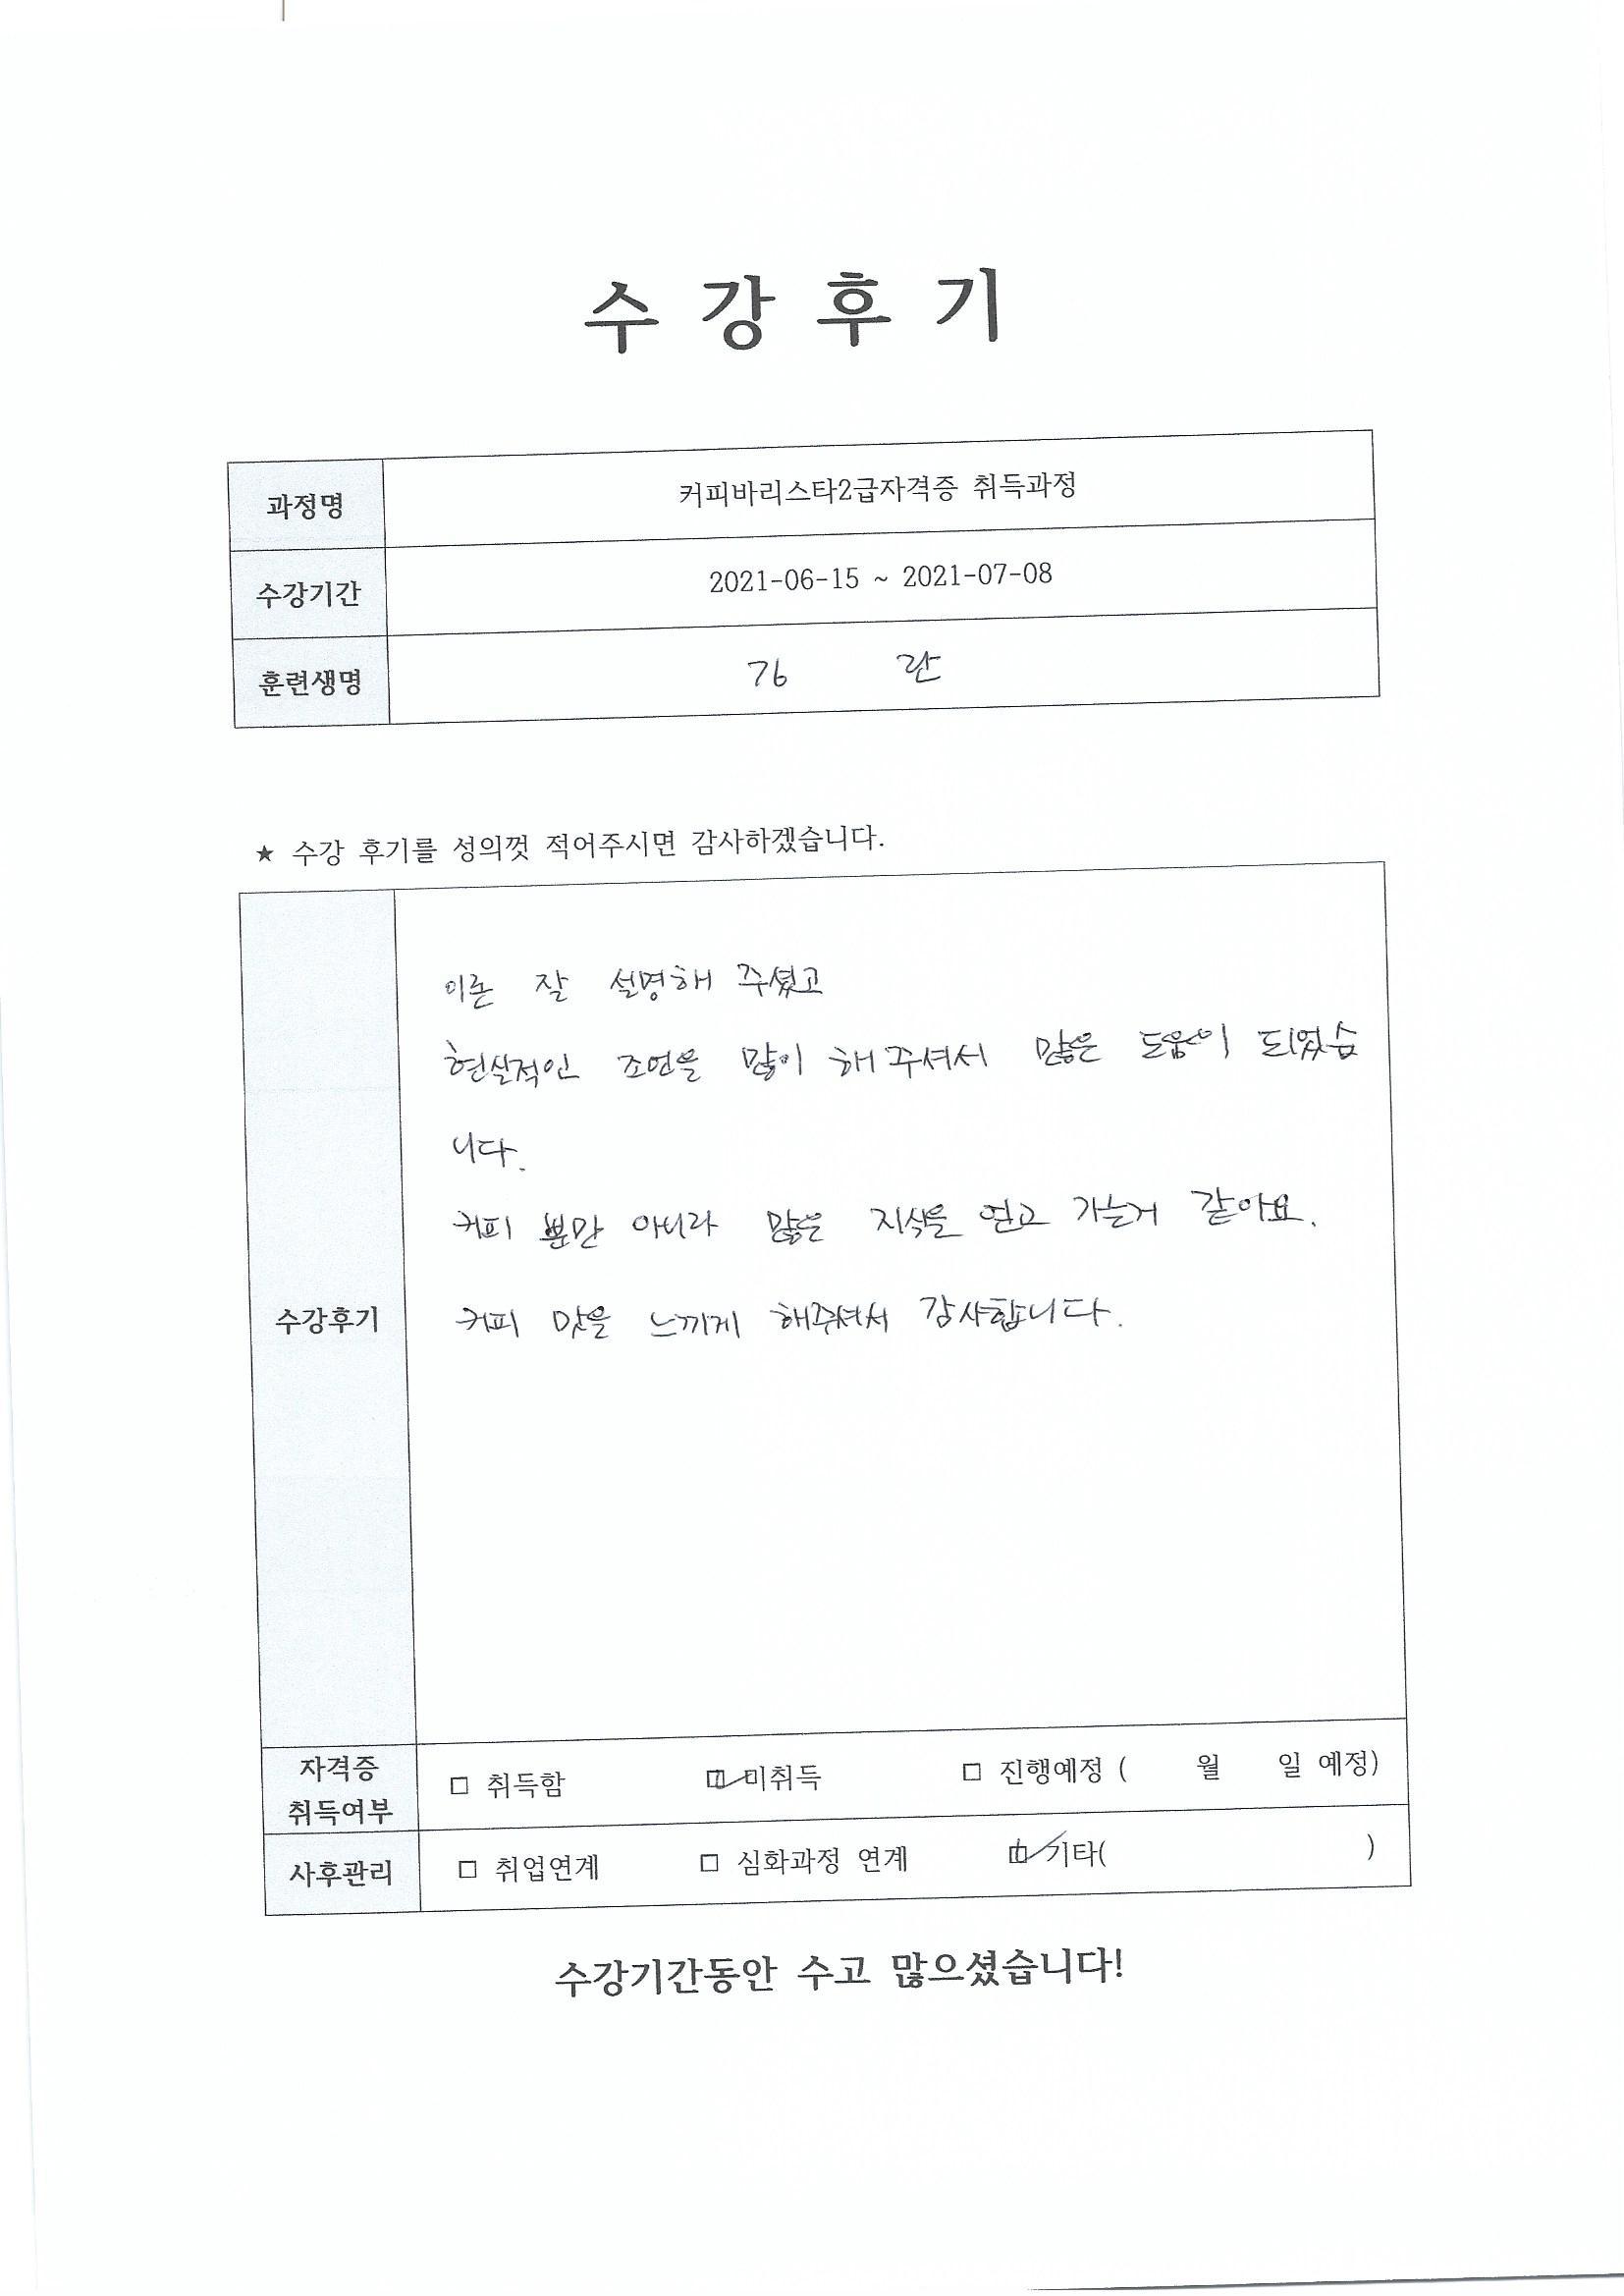 수 강 후 기
과정명 커피바리스타2급자격증 취득과정
수강기간 2021-06-15 ~ 2021-07-08
훈련생명 란
★ 수강 후기를 성의껏 적어주시면 감사하겠습니다.
수강후기
이론 잘 설명해 주셨고
현실적인 조언을 많이 해주셔서 많은 도움이 되었습
니다.
커피 뿐만 아니라 많은 지식을 얻고 가는거 같아요.
커피 맛을 느끼게 해주셔서 감사합니다.
자격증
취득여부 □ 취득함 ☑ 미취득 □ 진행예정 ( 월 일 예정)
사후관리 □ 취업연계 □ 심화과정 연계 ☑ 기타( )
수강기간동안 수고 많으셨습니다!